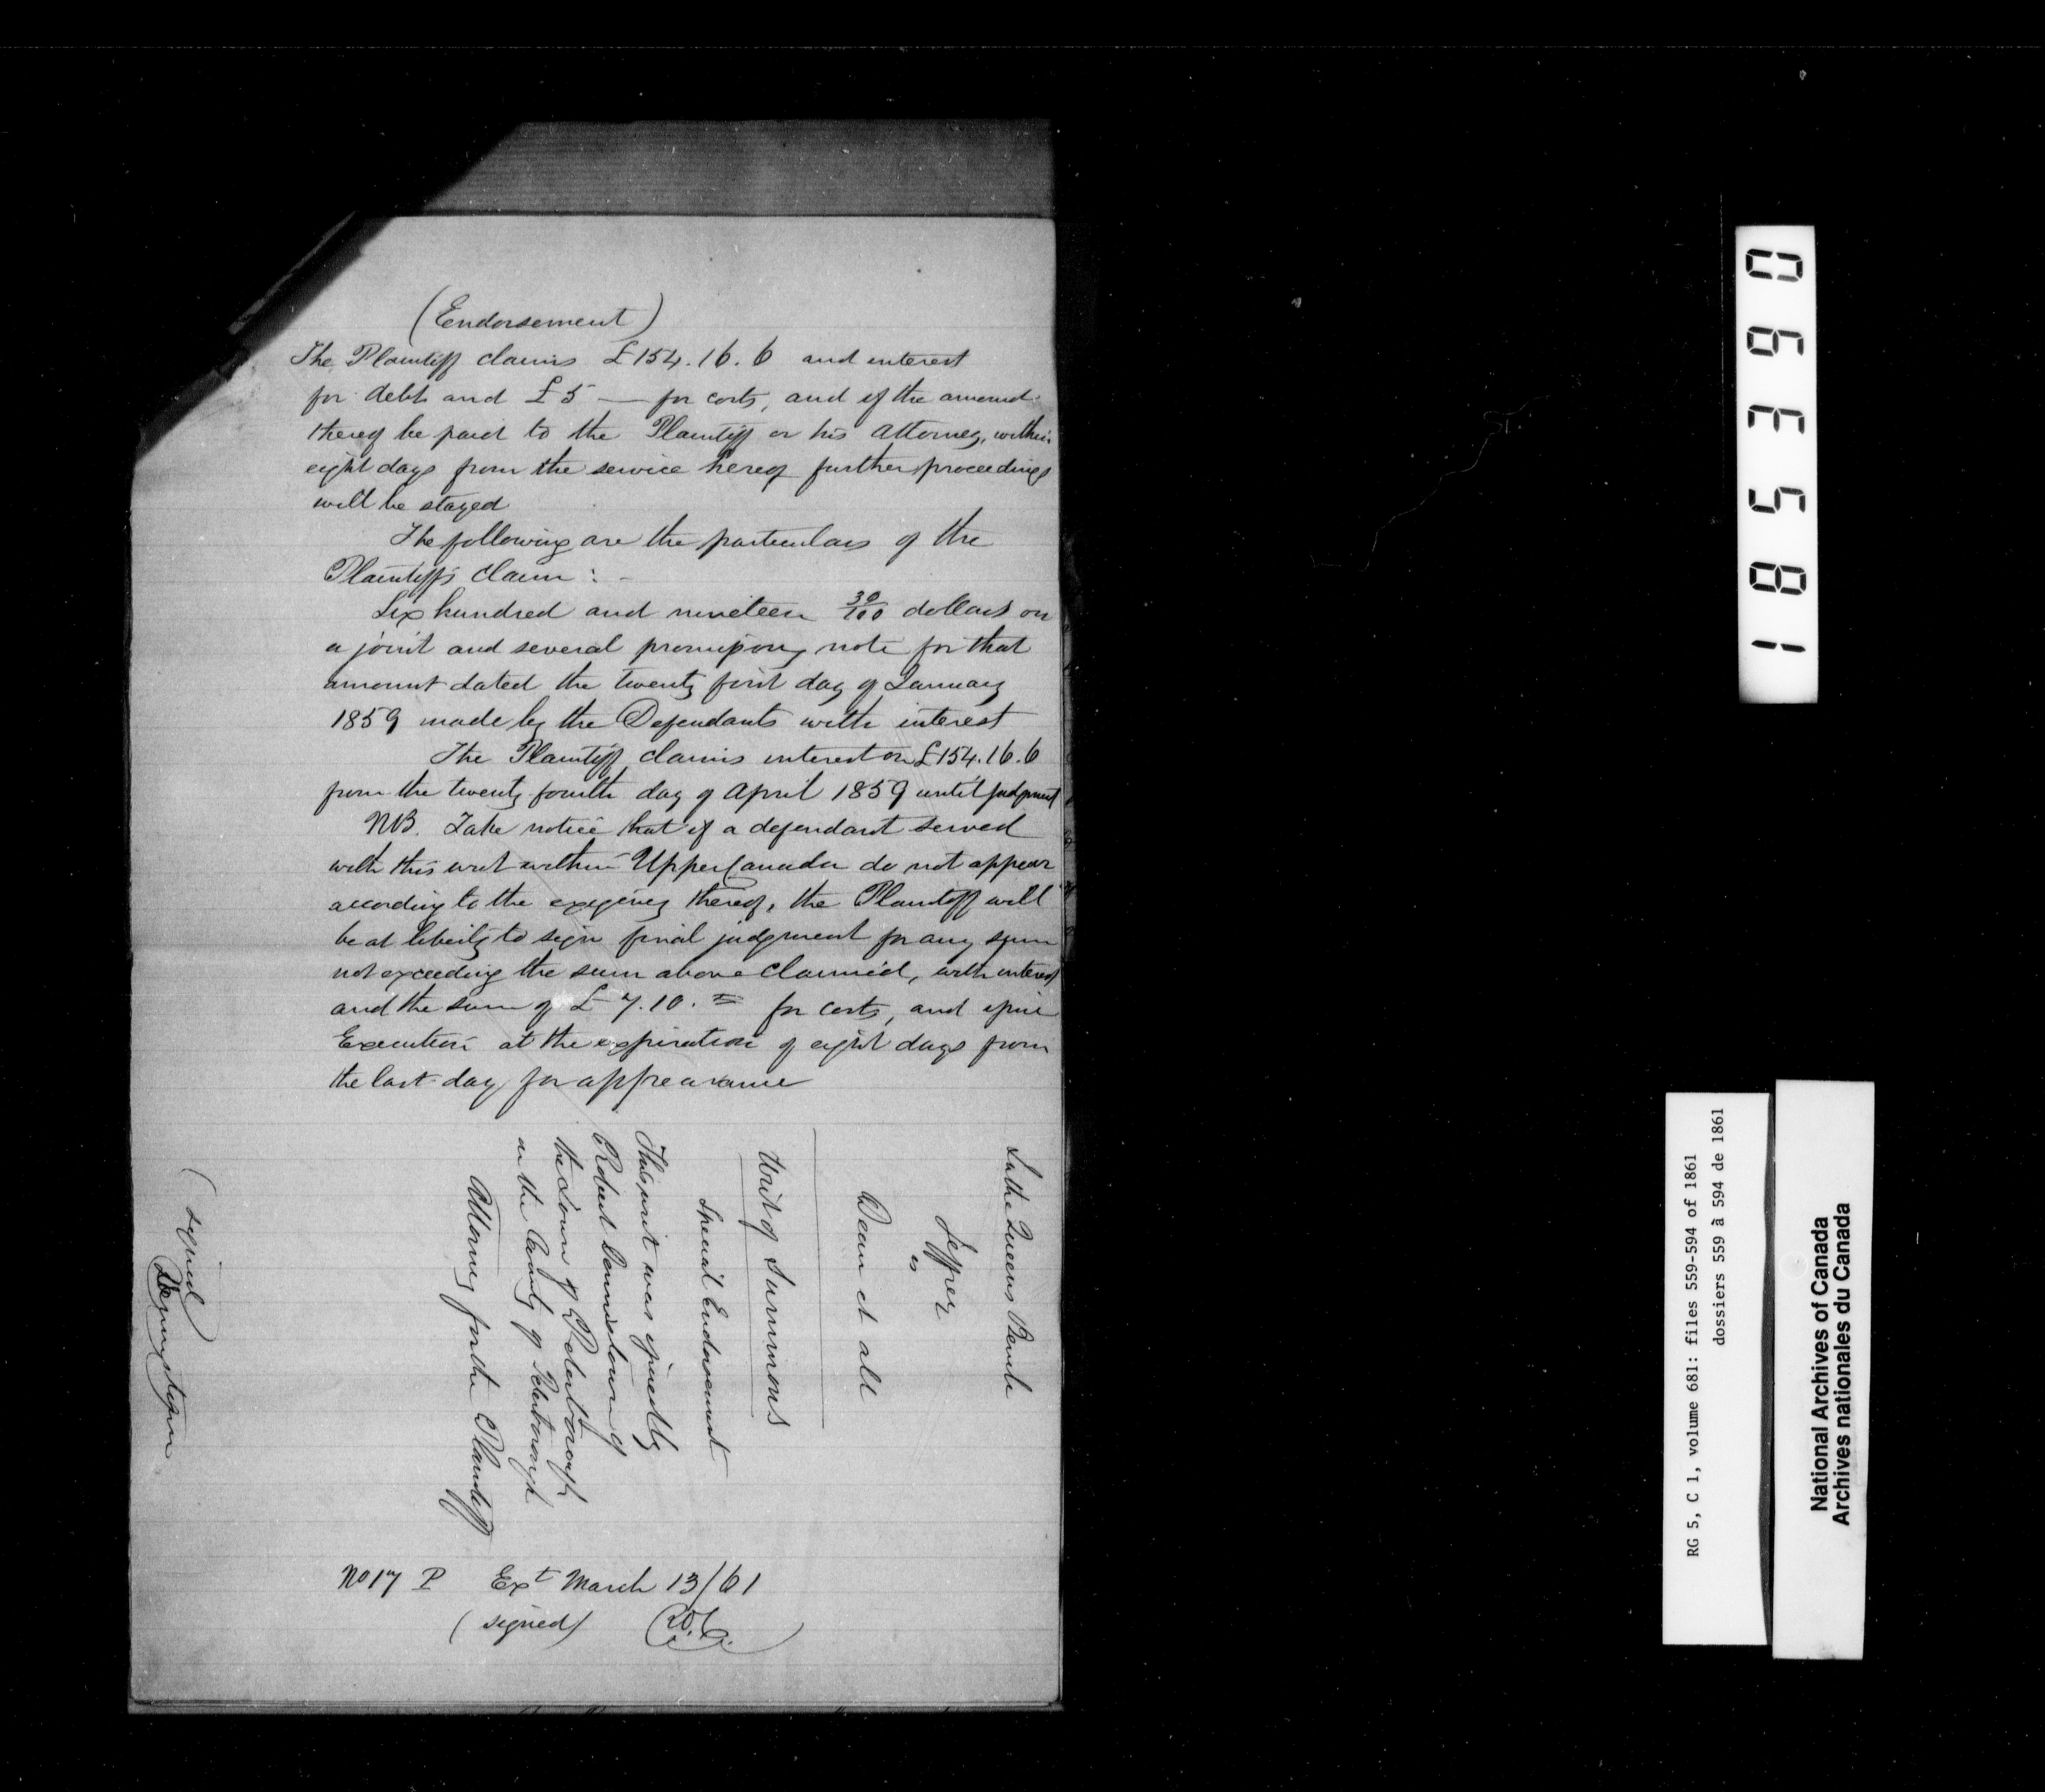 (Endorsement)
The Plaintiff claims £154.16.6 and interest
for debt and £5 — for costs, and if the amount
thereof be paid to the Plaintiff or his attorney, within
eight days from the service hereof further proceedings
will be stayed
The following are the particulars of the
Plaintiff's claim : -
Six hundred and nineteen 30/100 dollars on
a joint and several promissory note for that
amount dated the twenty first day of January
1859 made by the Defendants with interest
The Plaintiff claims interest on £154.16.6
from the twenty fourth day of April 1859 until judgment
NB. Take notice that if a defendant served
with this writ within Upper Canada do not appear
according to the exigency thereof, the Plaintiff will
be at liberty to sign final judgment for any sum
not exceeding the sum above claimed, with interest
and the sum of £7.10. = for costs, and issue
Execution at the expiration of eight days from
the last day for appearance
In the Queens Bench
vs
Dean et all
Writ of Summons
Special Endorsement
This writ was issued by
Robert of
the Town of Peterborough
in the County of Peterborough
Attorney for the Plaintiff
(signed
No 17 P Ext March 13/61
(signed)
1 8 5 3 6 0
RG 5, C 1, volume 681: files 559-594 of 1861
dossiers 559 à 594 de 1861
National Archives of Canada
Archives nationales du Canada